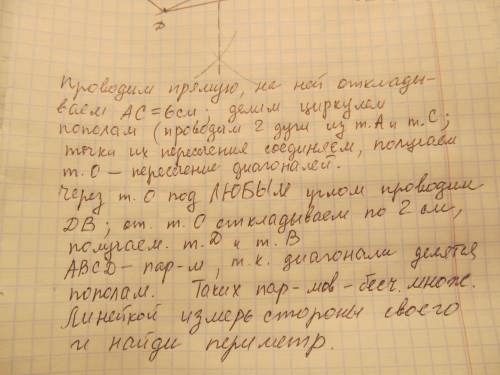 D
Проводим прямую, на ней отклады-
ваем AC = 6 см. делим циркулем
пополам (проводим 2 дуги из т. A и т. C;
точки их пересечения соединяем, получаем
т. O — пересечение диагоналей.
Через т. O под ЛЮБЫМ углом проводим
DB; от т. O откладываем по 2 см,
получаем т. D и т. B
ABCD - пар-м, т.к. диагонали делятся
пополам. Таких пар-мов - беск. множ.
Линейкой измерь стороны своего
и найди периметр.